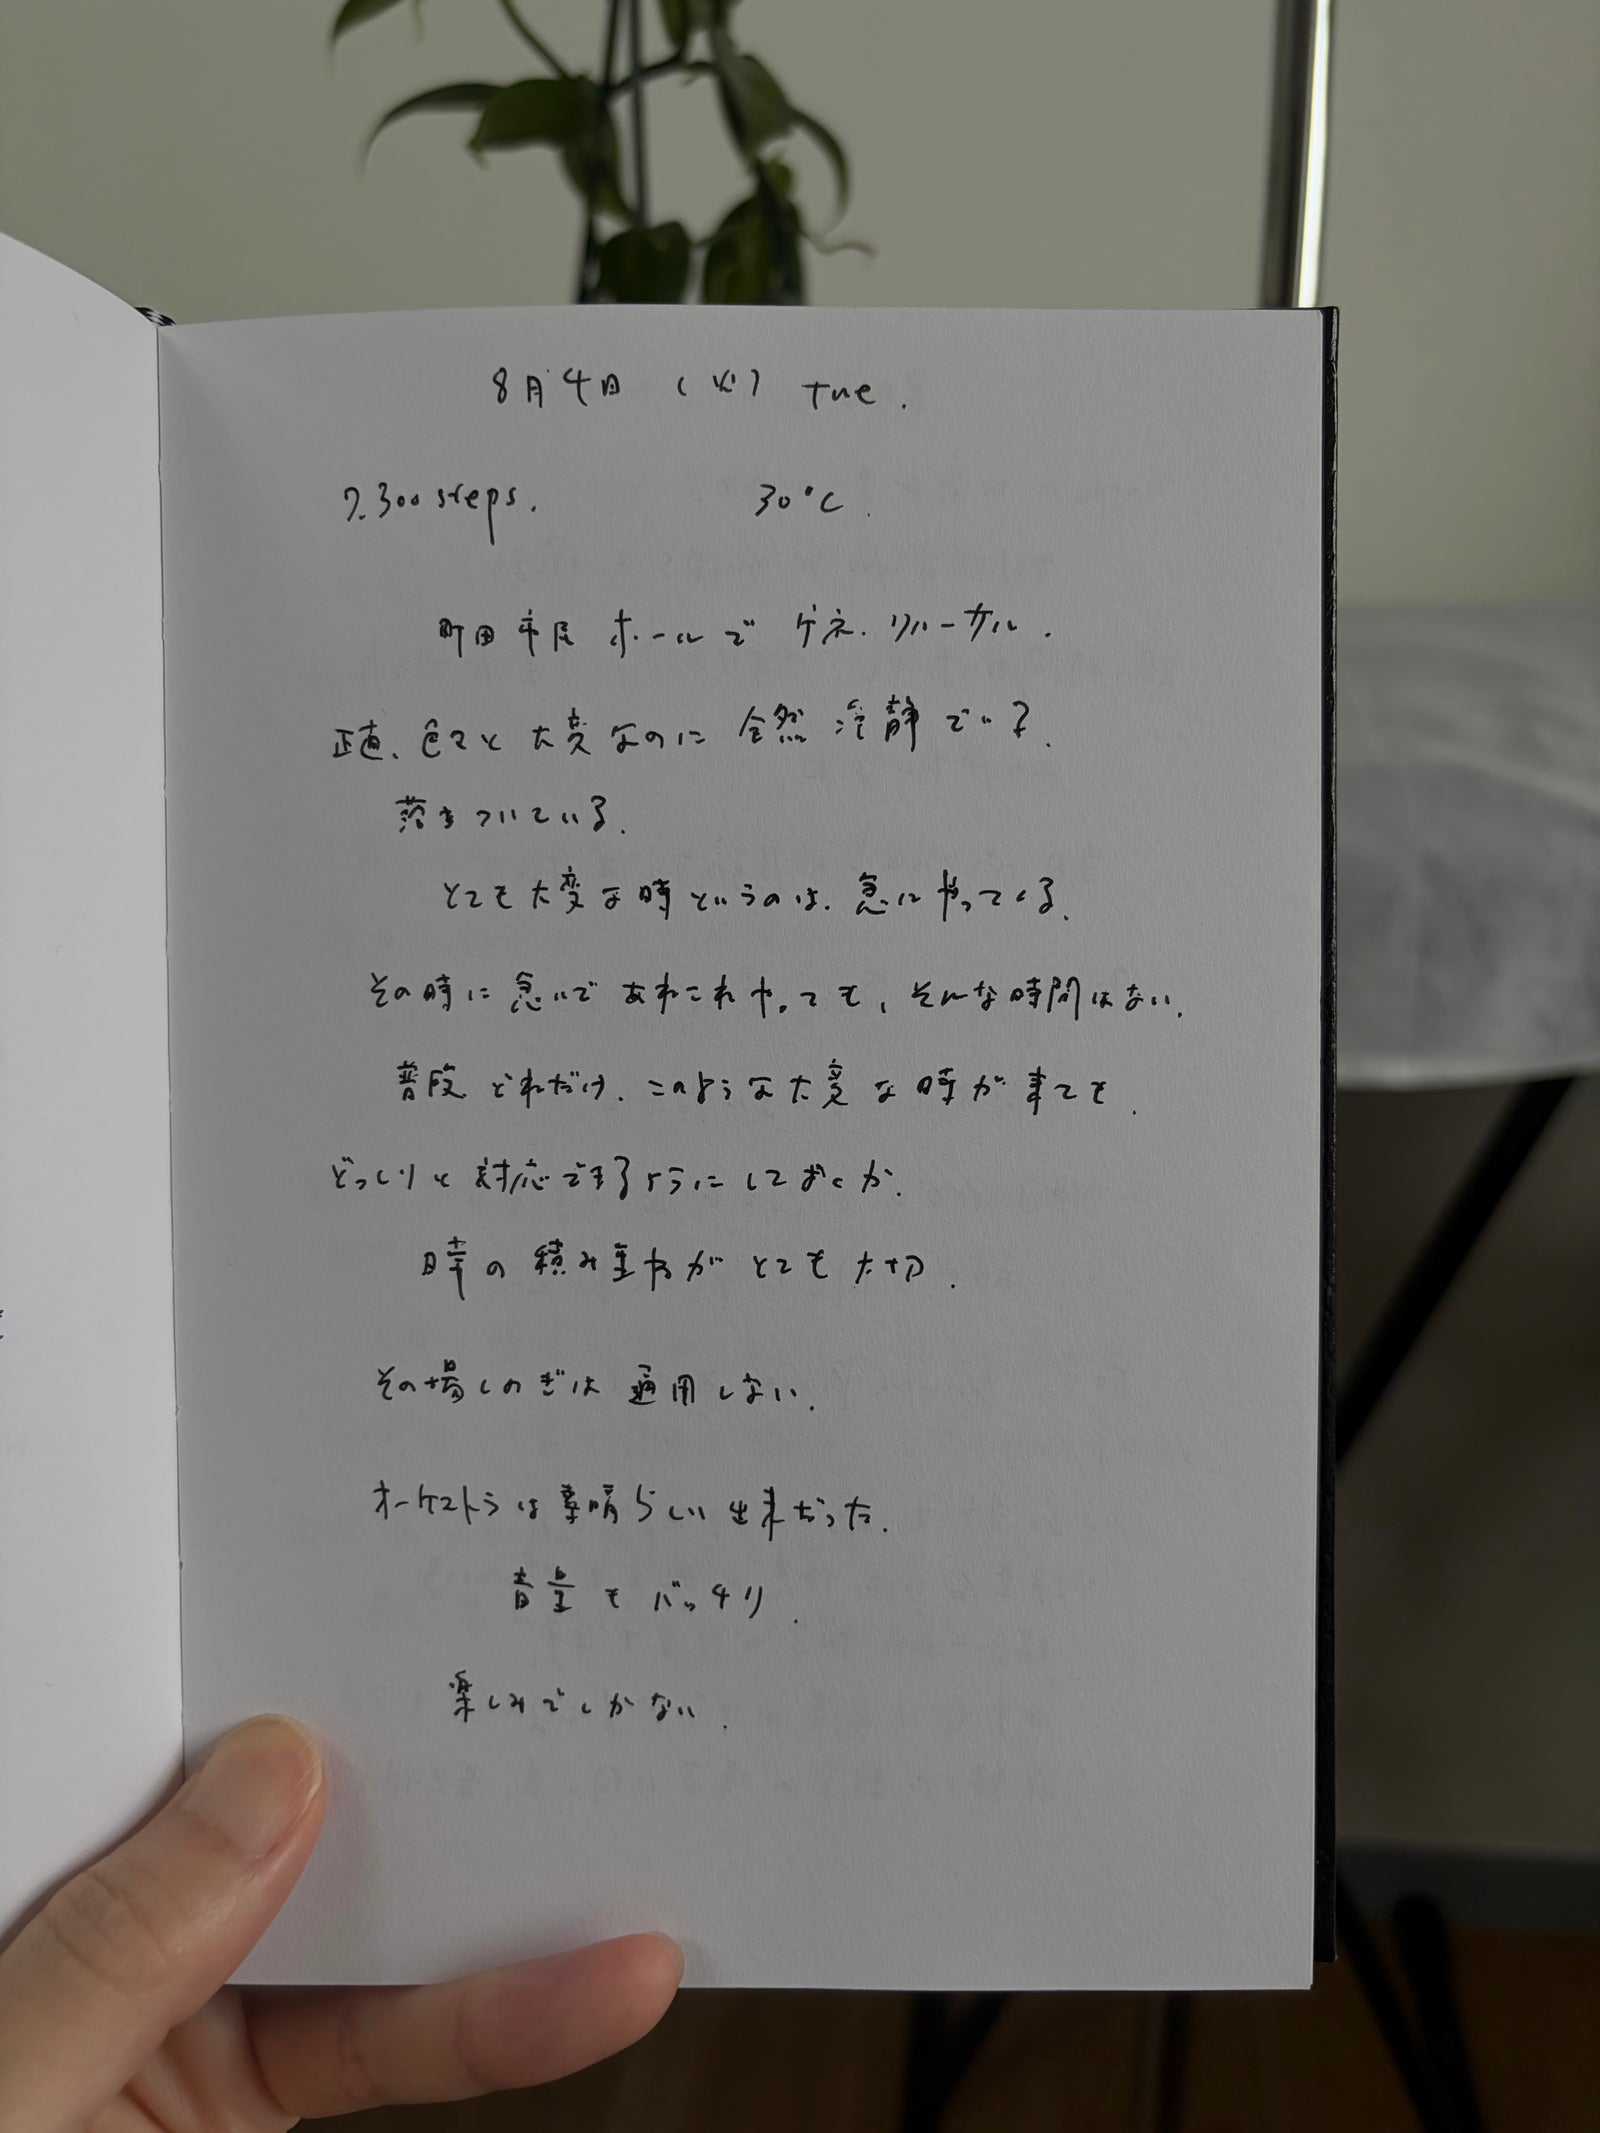 8月4日 (火) Tue.
7.300 steps. 30℃.
町田市民ホールで ゲネ.リハーサル.
正直、色々と大変なのに 全然 冷静でいる.
落ちついている.
とても大変な時というのは、急にやってくる.
その時に急いであれこれやっても、そんな時間はない.
普段どれだけ、このような大変な時が来ても.
どっしりと対応できるようにしておくか.
時の積み重ねがとても大切.
その場しのぎは通用しない.
オーケストラは素晴らしい出来だった.
音量もバッチリ.
楽しみでしかない.